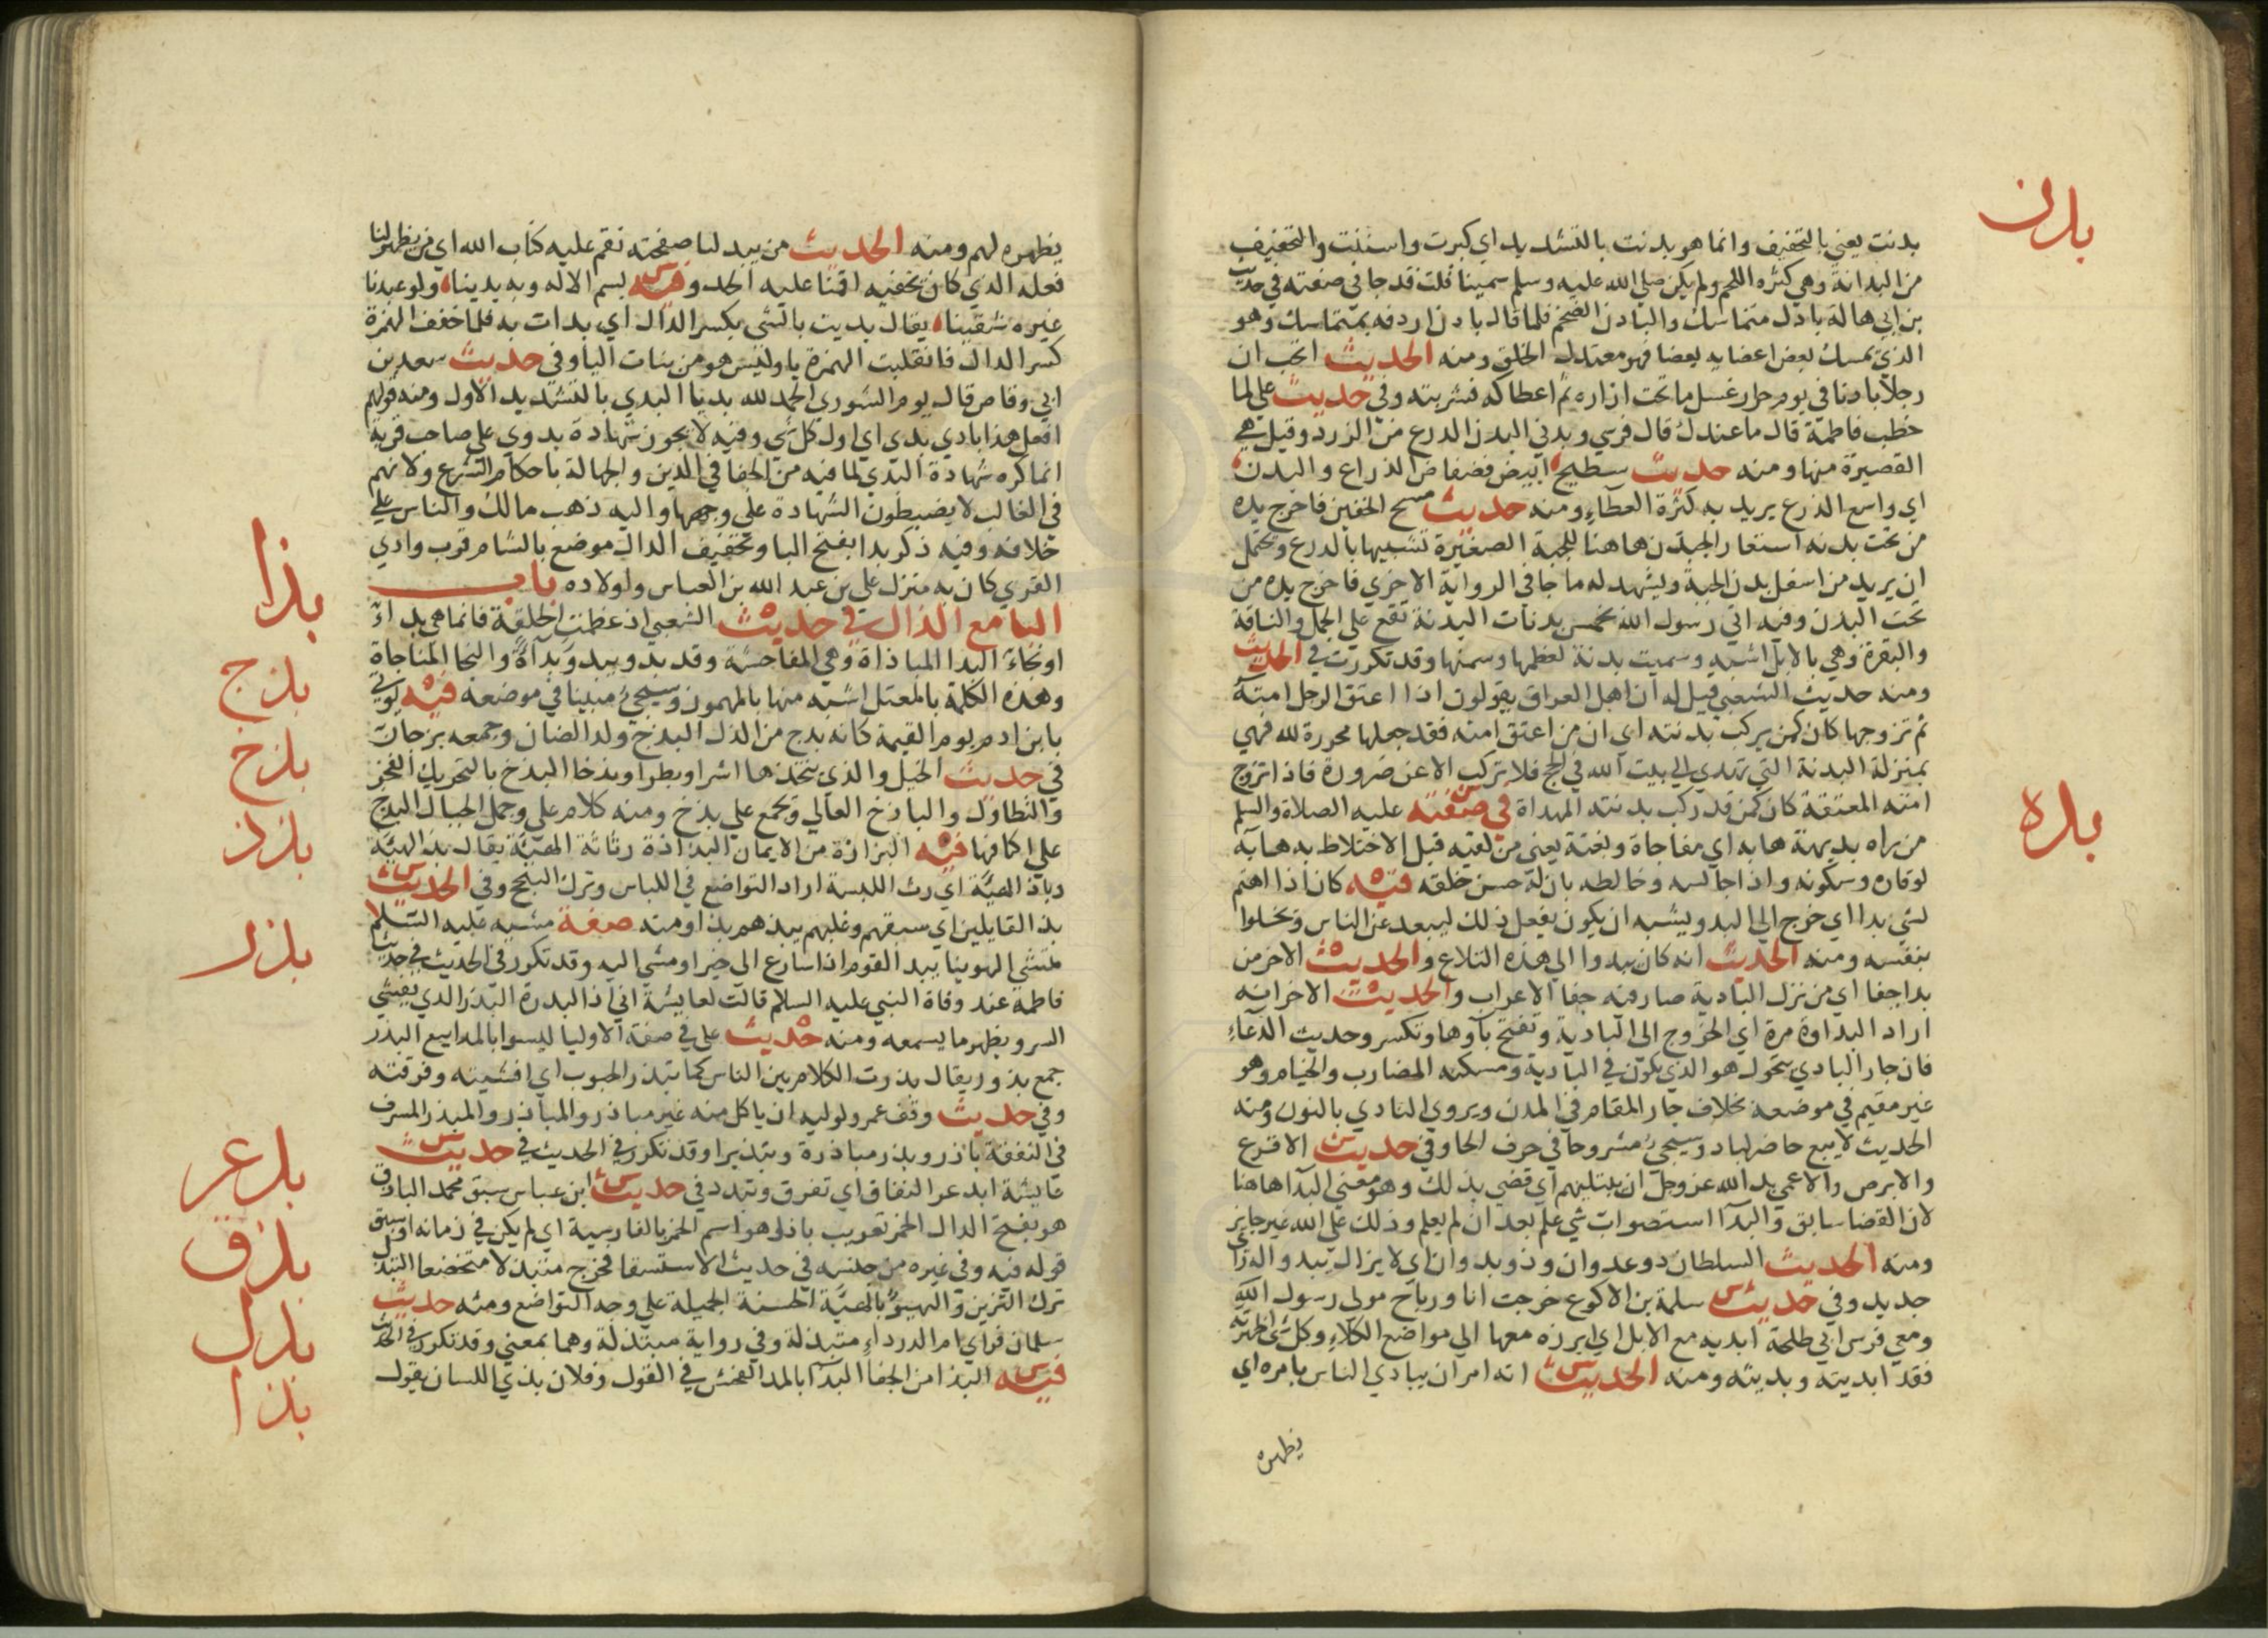 بدن
بدنت يعني بالتخفيف وانما هو بدنت بالتشديد اي كبرت واسننت والتخفيف
من البدانة وهي كثره اللحم ولم يكن صلي الله عليه وسلم سمينا قلت قد جا في صفته في حديث
بن ابي هالة بادن متماسك والبادن الضخم فلما قال بادن اردفه بمتماسك وهو
الذي يمسك بعض اعضايه بعضا فهو معتدل الخلق ومنه الحديث اتحب ان
رجلا بادنا في يوم حار غسل ما تحت ازاره ثم اعطاكه فشربته وفي حديث علي لما
خطب فاطمة قال ما عندك قال فرسي وبدني البدن الدرع من الزرد وقيل هي
القصيرة منها ومنه حديث سطيح ابيض فضفاض الرداع والبدن
اي واسع الدرع يريد به كثرة العطاء ومنه حديث مسح الخفين فاخرج يده
من تحت بدنه استعار البدن هاهنا للجبة الصغيرة تشبيها بالدرع ويحتمل
ان يريد من اسفل بدن الجبة ويشهد له ما جا في الرواية الاخري فاخرج يده من
تحت البدن وفيه اتي رسول الله بخمس بدنات البدنة تقع علي الجمل والناقة
والبقرة وهي بالابل اشبه وسميت بدنة لعظمها وسمنها وقد تكررت في الحديث
ومنه حديث الشعبي قيل له ان اهل العراق يقولون اذا اعتق الرجل امته
ثم تزوجها كان كمن يركب بدنته اي ان من اعتق امته فقد جعلها محررة لله فهي
بمنزلة البدنة التي تهدي الي بيت الله في الحج فلا تركب الا عن ضرورة فاذا تزوج
امته المعتقة كان كمن قد ركب بدنته المهداة في صفته عليه الصلاة والسلم
بده
من راه بديهة هابه اي مفاجاة وبغتة يعني من لقيه قبل الاختلاط به هابه
لوقاره وسكونه واذا جالسه وخالطه بان له حسن خلقه فيه كان اذا اهتم
لشي بدا اي خرج الي البدو يشبه ان يكون يفعل ذلك ليبعد عن الناس ويخلوا
بنفسه ومنه الحديث انه كان يبدوا الي هذه التلاع والحديث الاخر من
بدا جفا اي من نزل البادية صار فيه جفا الاعراب والحديث الاخر انه
اراد البداوة مرة اي الخروج الي البادية وتفتح باوها وتكسر وحديث الدعاء
فان جار البادي يتحول هو الذي يكون في البادية ومسكنه المضارب والخيام وهو
غير مقيم في موضعه بخلاف جار المقام في المدن ويروي النادي بالنون ومنه
الحديث لا يبيع حاضر لباد وسيجئ مشروحا في حرف الحا وفي حديث الاقرع
والابرص والاعمي بدا لله عز وجل ان يبتليهم اي قضي بذلك وهو معني البدا هاهنا
لان القضا سابق والبدا استصواب شي علم بعد ان لم يعلم وذلك علي الله غير جايز
ومنه الحديث السلطان ذو عدوان وذو بدوان اي لا يزال يبدو له راي
جديد وفي حديث سلمة بن الاكوع خرجت انا ورباح مولي رسول الله
ومعي فرس ابي طلحة ابديه مع الابل اي ابرزه معها الي مواضع الكلاء وكل شي اظهرته
فقد ابديته وبديته ومنه الحديث انه امر ان يبادي الناس بامره اي
يظهره
يظهره لهم ومنه الحديث من يبد لنا صفحته نقم عليه كتاب الله اي من يظهر لنا
فعله الذي كان يخفيه اقمنا عليه الحد وفيه بسم الاله وبه بدينا ولو عبدنا
غيره شقينا يقال بديت بالشي بكسر الدال اي بدات به فلما خفف الهمزة
كسر الدال فانقلبت الهمزة يا وليس هو من بنات اليا وفي حديث سعد بن
ابي وقاص قال يوم الشوري الحمد لله بديا البدي بالتشديد الاول ومنه قولهم
افعل هذا بادي بدي اي اول كل شي وفيه لا يجوز شهادة بدوي علي صاحب قرية
انما كره شهادة البدي لما فيه من الجفا في الدين والجهالة باحكام الشرع ولانهم
في الغالب لا يضبطون الشهادة علي وجهها واليه ذهب مالك والناس علي
خلافه وفيه ذكر بدا بفتح البا وتخفيف الدال موضع بالشام قرب وادي
القري كان به منزل علي بن عبد الله بن العباس واولاده باب
بذا
البا مع الذال في حديث الشعبي اذ عظمت الحلقة فانما هي بداء
او نجاء البدا المباذاة وهي المفاحشة وقد بذو يبذو بذاة والنجا المناجاة
وهذه الكلمة بالمعتل اشبه منها بالمهموز وسيجئ مبينا في موضعه فيه يوتي
بذج
بابن ادم يوم القيمة كانه بذج من الذل البذج ولد الضان وجمعه بزجان
بذخ
في حديث الخيل والذي يتخذها اشرا وبطرا وبذخا البذخ بالتحريك الفخر
والتطاول والباذخ العالي ويجمع علي بذخ ومنه كلام علي وحمل الجبال البذخ
بذذ
علي اكنافها فيه البزازة من الايمان البذاذة رثاثة الهيئة يقال بذ الهيئة
وباذ الهيئة اي رث اللبسة اراد التواضع في اللباس وترك التبجح وفي الحديث
بذ القايلين اي سبقهم وغلبهم يبذهم بذا ومنه صفة مشيه عليه السلام
يمشي الهوينا يبذ القوم اذا سارع الي خير او مشي اليه وقد تكرر في الحديث في حديث
بذر
فاطمة عند وفاة النبي عليه السلام قالت لعايشة اني اذا لبدرة البذر الذي يفشي
السر ويظهر ما يسمعه ومنه حديث علي في صفة الاوليا ليسوا بالمداييع البذر
جمع بذور يقال بذرت الكلام بين الناس كما تبذر الحبوب اي افشيته وفرقته
وفي حديث وقف عمر ولوليه ان ياكل منه غير مباذر والمباذر والمبذر المسرف
في النفقة باذر وبذر مباذرة وتبذيرا وقد تكرر في الحديث في حديث
بذعر
عايشة ابذعر النفاق اي تفرق وتبدد في حديث ابن عباس سبق محمد الباذق
بذق
هو بفتح الذال الخمر تعريب باذه وهو اسم الخمر بالفارسية اي لم يكن في زمانه او سبق
قوله فيه وفي غيره من جنسه في حديث الاستسقا فخرج متبذلا متخضعا التبذل
بذل
ترك التزين والتهيؤ بالهيئة الحسنة الجميلة علي وجه التواضع ومنه حديث
سلمان فراي ام الدرداء متبذلة وفي رواية مبتذلة وهما بمعني وقد تكرر في الحديث
بذا
فيه البذا من الجفا البذا بالمد الفحش في القول وفلان بذي اللسان يقول